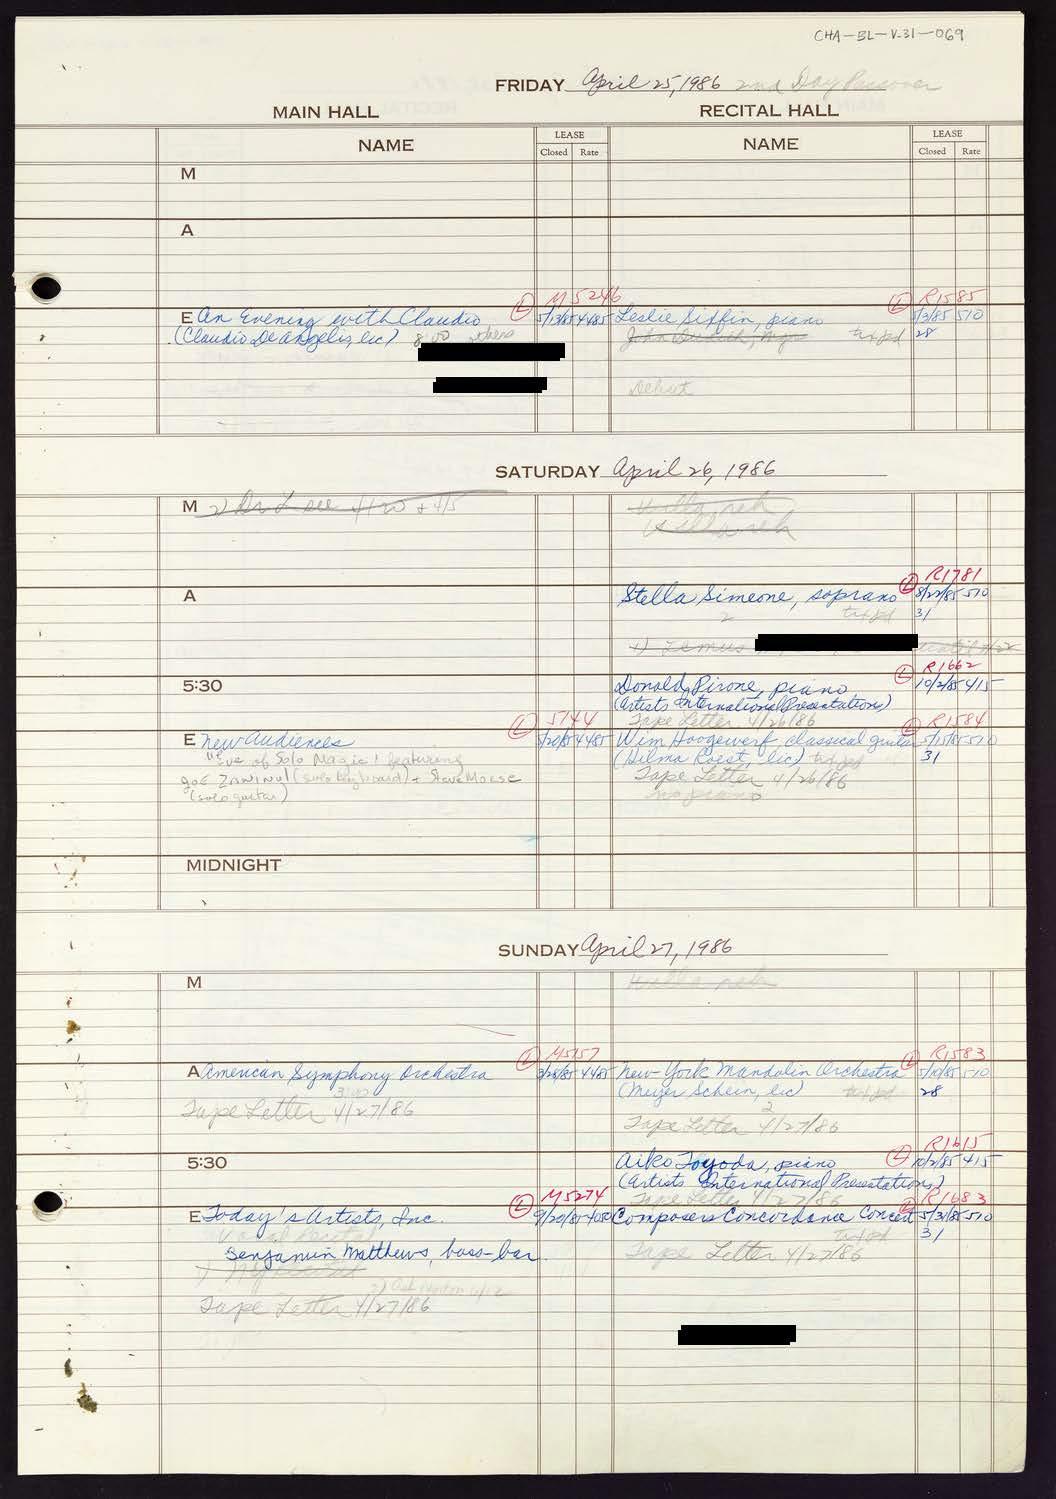 CHA-BL-V.31-069
FRIDAY April 25, 1986 2nd Day Passover
MAIN HALL RECITAL HALL
NAME LEASE NAME LEASE
Closed Rate Closed Rate
M
A
L M 5246 L R1585
E An Evening with Claudio 5/13/85 4485 Leslie Siffin, piano 5/3/85 510
(Claudio De Angelis, lic) 8:00 28
Debut
SATURDAY April 26, 1986
M 2) Dr L see 4/20 + 4/5 Hilla reh
Hilla reh
L R1781
A Stella Simeone, soprano 8/22/85 510
2 31
1) Lemus
L R1662
5:30 Donald Pirone, piano 10/2/85 415
(Artists International Presentations)
L 5144 Tape Letter 4/26/86 L R1584
E New Audiences 5/20/85 4485 Wim Hoogewerf classical guitar 5/15/85 510
"Eve of Solo Magic" featuring (Hilma Roest, lic) 31
Joe Zawinul (solo keyboard) + Steve Morse Tape Letter 4/26/86
(solo guitar) no piano
MIDNIGHT
SUNDAY April 27, 1986
M Hilla reh
L M5157 L R1583
A American Symphony Orchestra 3/28/85 4485 New York Mandolin Orchestra 5/10/85 510
3:00 (Meyer Schein, lic) 28
Tape Letter 4/27/86 2
Tape Letter 4/27/86
L R1615
5:30 Aiko Toyoda, piano 10/2/85 415
(Artists International Presentations)
L M5274 Tape Letter 4/27/86 L R1683
E Today's Artists, Inc. 9/20/85 4050 Composers Concordance Concert 5/31/85 510
Vocal Recital 31
Benjamin Matthews, bass-bar. Tape Letter 4/27/86
Tape Letter 4/27/86